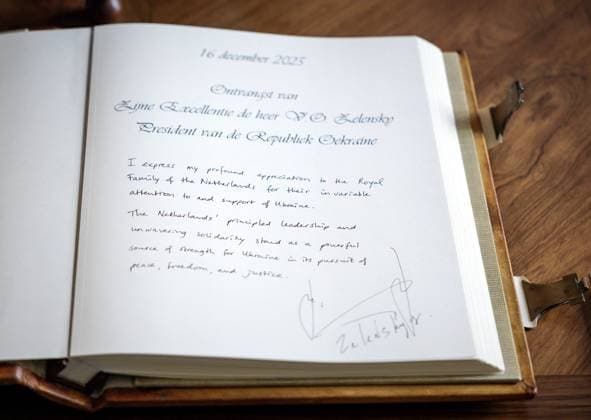 16 december 2025
Ontvangst van
Zijne Excellentie de heer V.O. Zelensky
President van de Republiek Oekraïne
I express my profound appreciation to the Royal
Family of the Netherlands for their invariable
attention to and support of Ukraine.
The Netherlands' principled leadership and
unwavering solidarity stand as a powerful
source of strength for Ukraine in its pursuit of
peace, freedom, and justice.